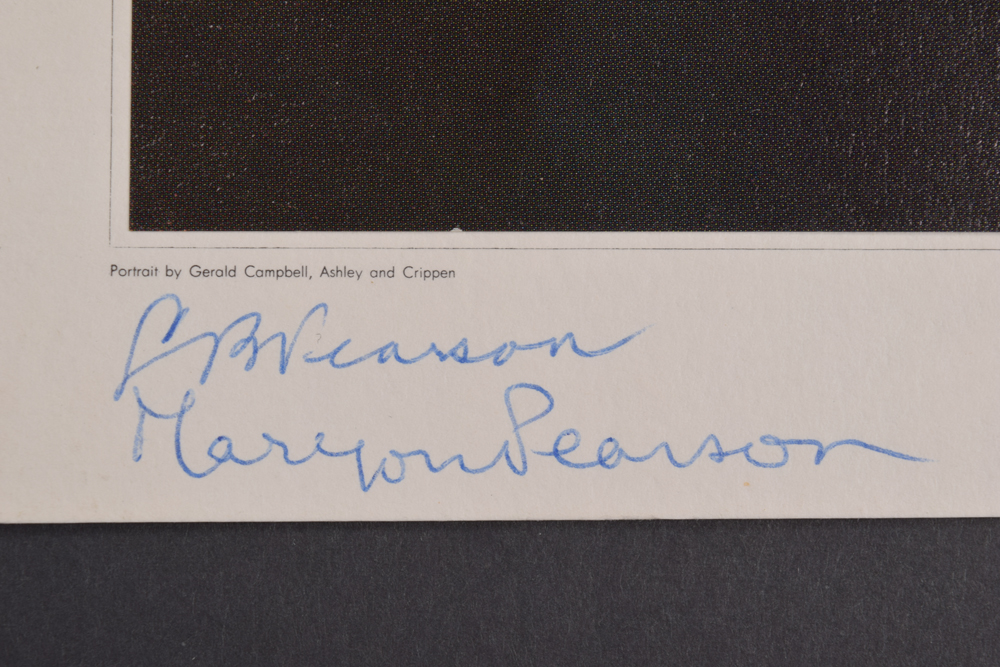 Portrait by Gerald Campbell, Ashley and Crippen
LBPearson
Maryon Pearson